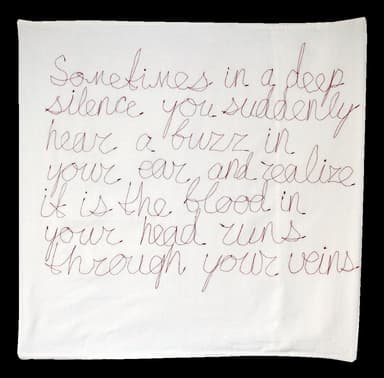 Sometimes in a deep
silence you suddenly
hear a buzz in
your ear and realize
it is the blood in
your head runs
through your veins